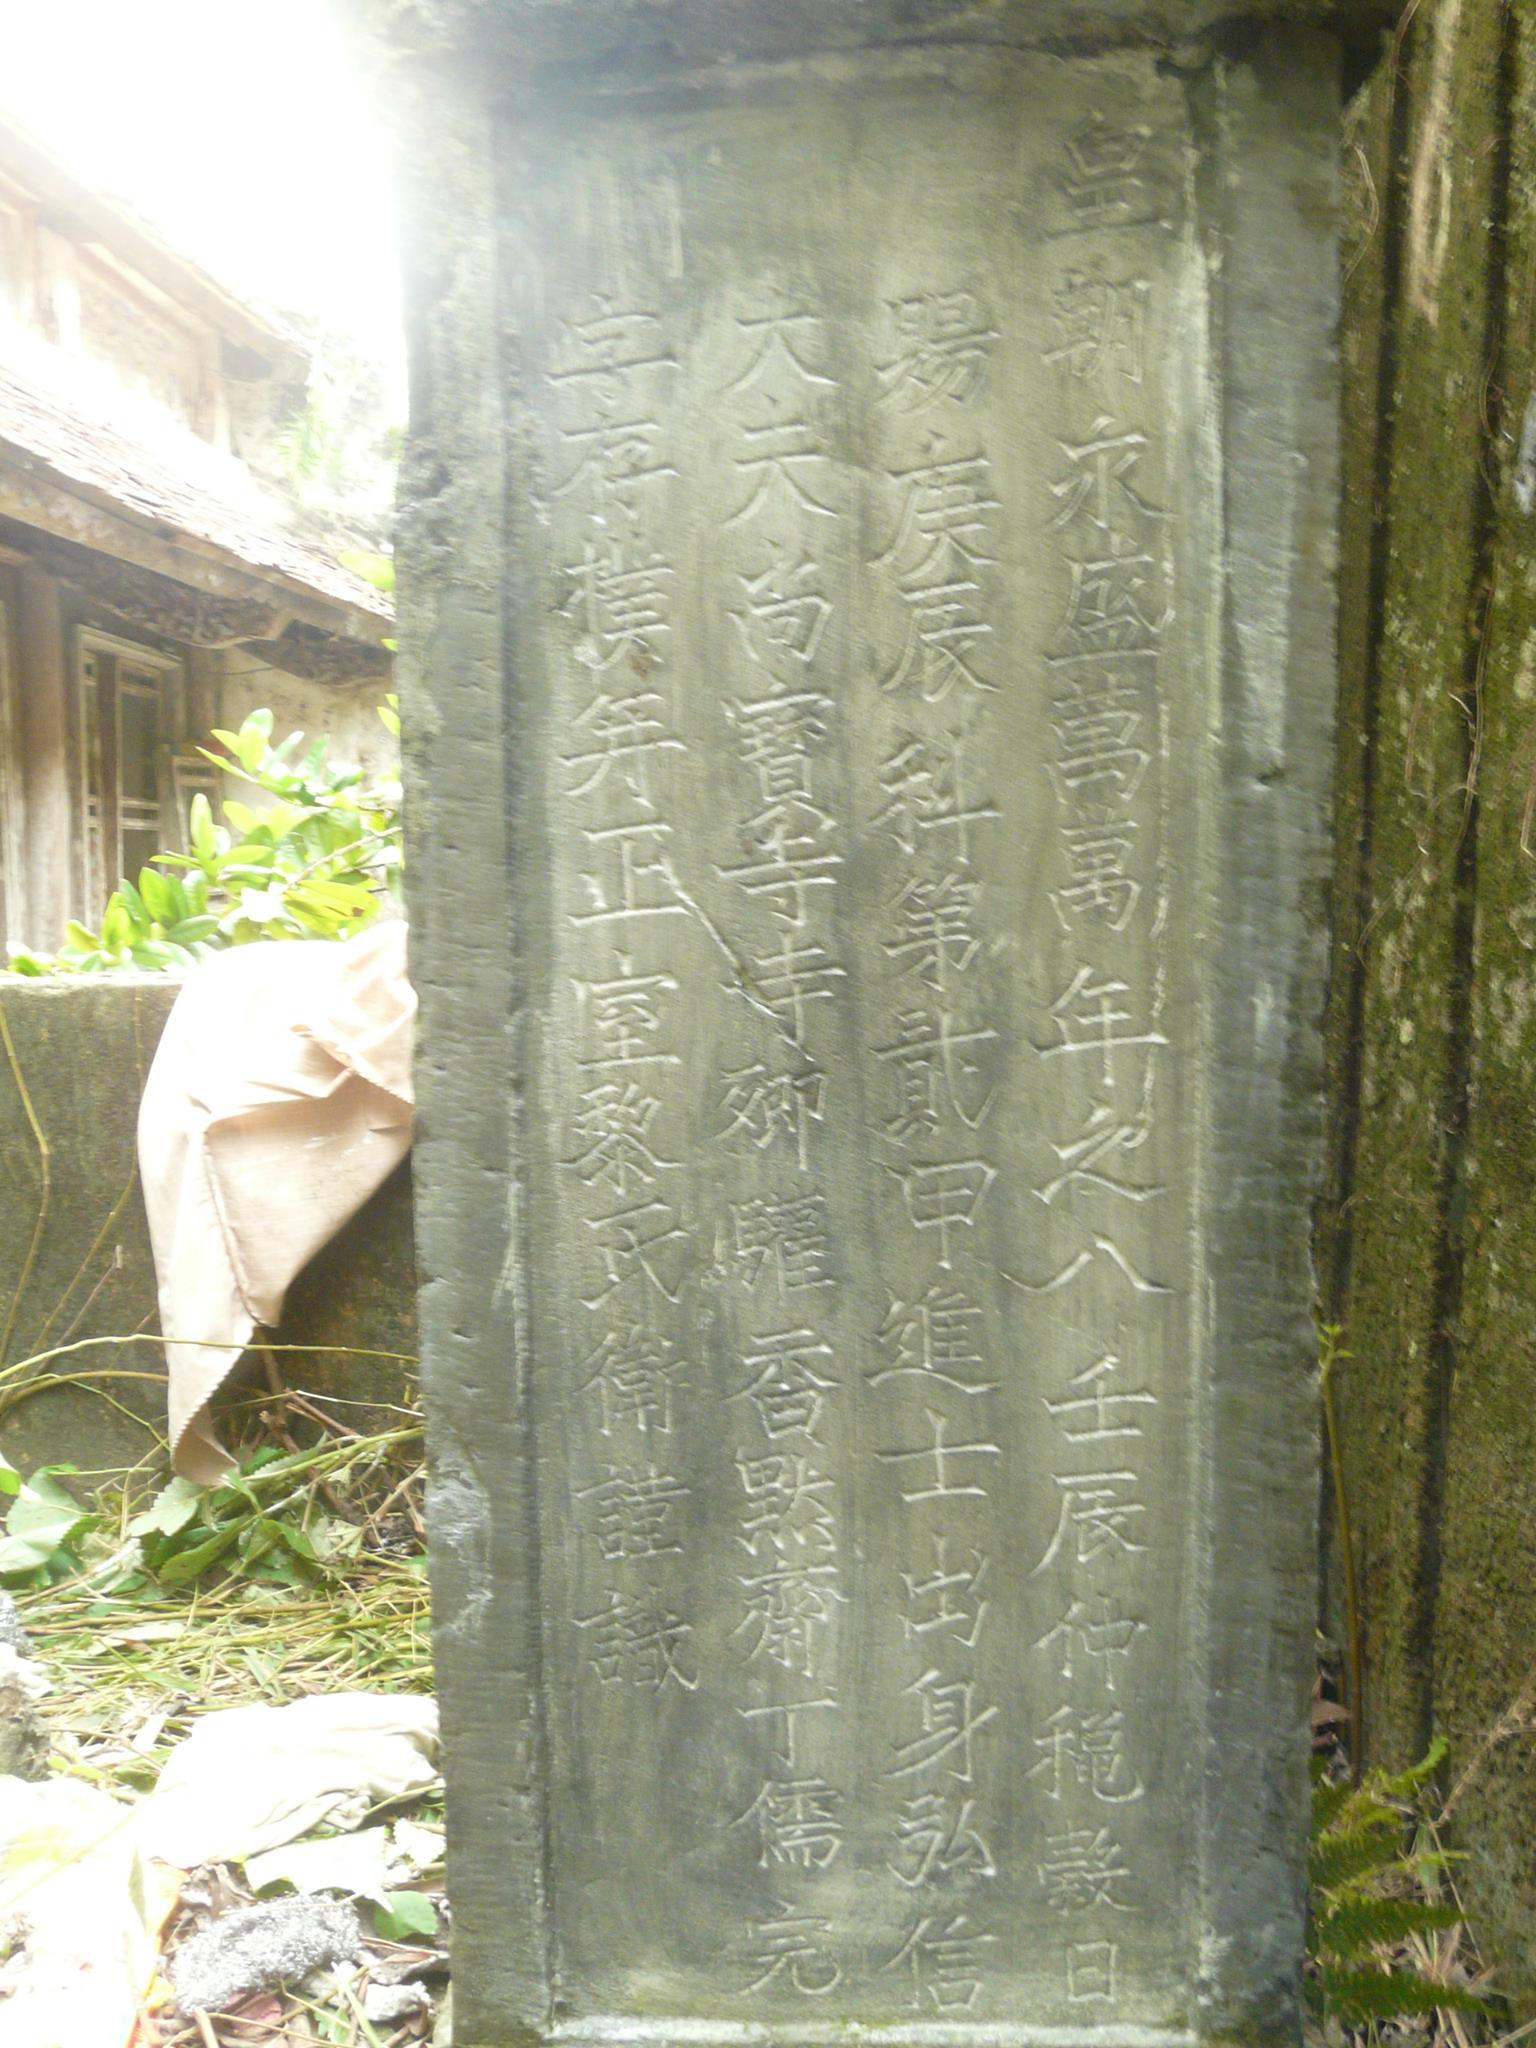 皇朝永盛萬萬年之八壬辰仲穐穀日
賜庚辰科第貳甲進士出身弘信
大夫尚寶寺寺卿驩香默齋丁儒完
字存樸并正室黎氏衛謹識